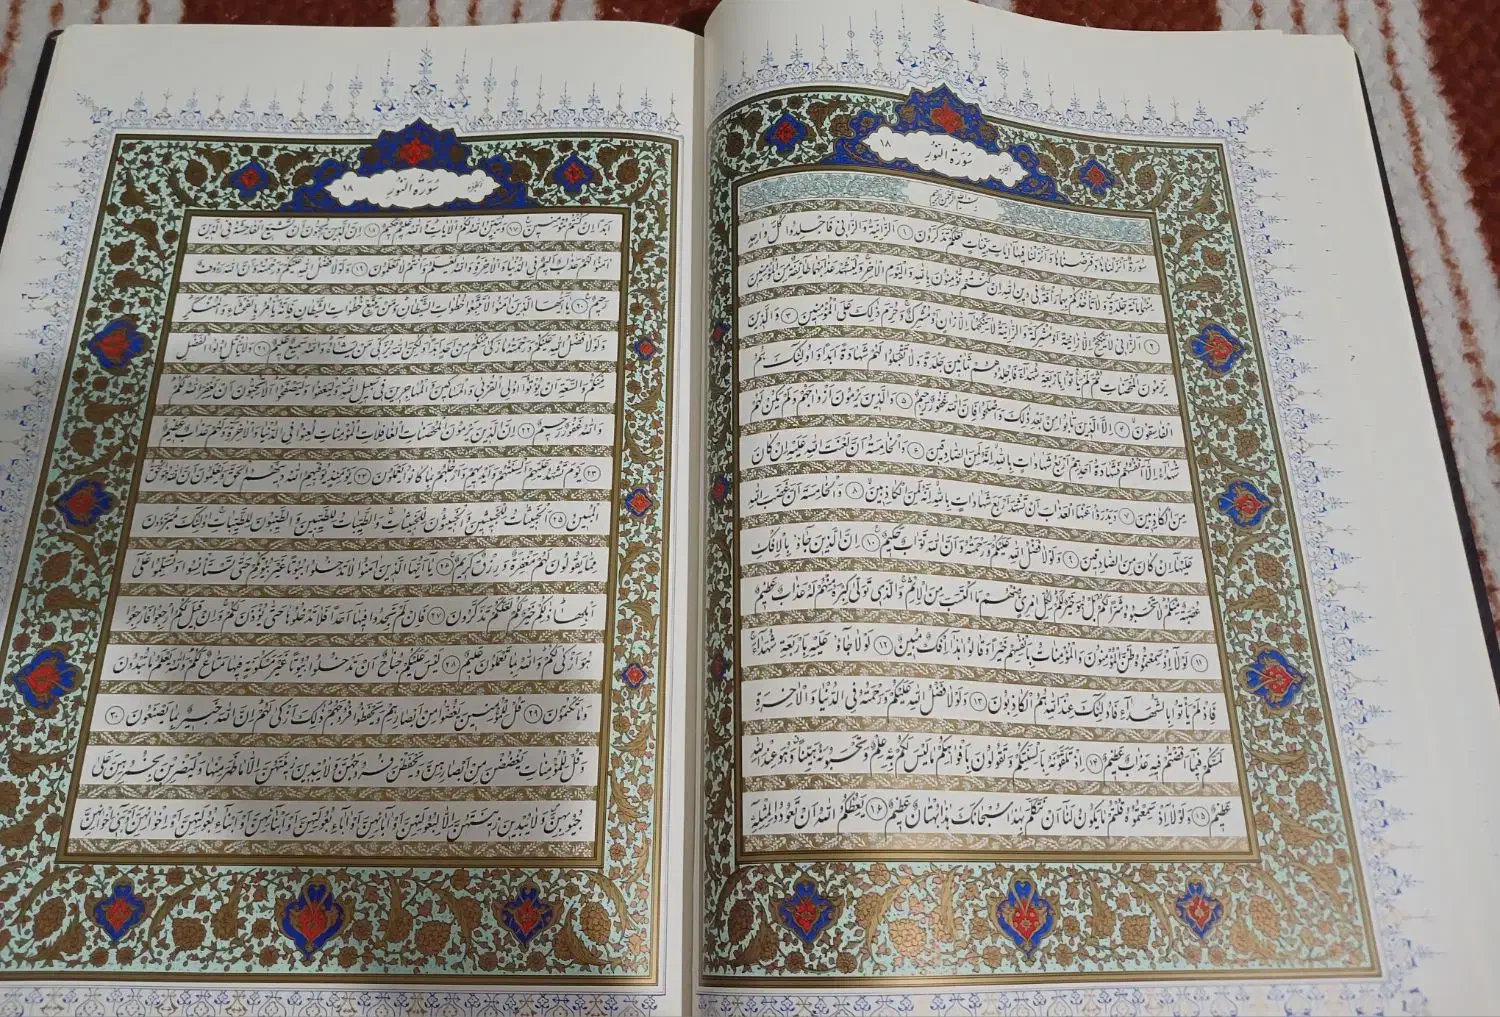 سُورَةُ النُّورِ ١٨
بِسْمِ اللهِ الرَّحْمٰنِ الرَّحِيمِ
سُورَةٌ اَنْزَلْنَاهَا وَفَرَضْنَاهَا وَاَنْزَلْنَا فِيهَا اٰيَاتٍ بَيِّنَاتٍ لَعَلَّكُمْ تَذَكَّرُونَ ١ اَلزَّانِيَةُ وَالزَّانِى فَاجْلِدُوا كُلَّ وَاحِدٍ
مِنْهُمَا مِائَةَ جَلْدَةٍ وَلَا تَأْخُذْكُمْ بِهِمَا رَأْفَةٌ فِى دِينِ اللهِ اِنْ كُنْتُمْ تُؤْمِنُونَ بِاللهِ وَالْيَوْمِ الْاٰخِرِ وَلْيَشْهَدْ عَذَابَهُمَا طَائِفَةٌ مِنَ الْمُؤْمِنِينَ
٢ اَلزَّانِى لَا يَنْكِحُ اِلَّا زَانِيَةً اَوْ مُشْرِكَةً وَالزَّانِيَةُ لَا يَنْكِحُهَا اِلَّا زَانٍ اَوْ مُشْرِكٌ وَحُرِّمَ ذٰلِكَ عَلَى الْمُؤْمِنِينَ ٣ وَالَّذِينَ
يَرْمُونَ الْمُحْصَنَاتِ ثُمَّ لَمْ يَأْتُوا بِاَرْبَعَةِ شُهَدَاءَ فَاجْلِدُوهُمْ ثَمَانِينَ جَلْدَةً وَلَا تَقْبَلُوا لَهُمْ شَهَادَةً اَبَدًا وَاُولٰئِكَ هُمُ
الْفَاسِقُونَ ٤ اِلَّا الَّذِينَ تَابُوا مِنْ بَعْدِ ذٰلِكَ وَاَصْلَحُوا فَاِنَّ اللهَ غَفُورٌ رَحِيمٌ ٥ وَالَّذِينَ يَرْمُونَ اَزْوَاجَهُمْ وَلَمْ يَكُنْ لَهُمْ
شُهَدَاءُ اِلَّا اَنْفُسُهُمْ فَشَهَادَةُ اَحَدِهِمْ اَرْبَعُ شَهَادَاتٍ بِاللهِ اِنَّهُ لَمِنَ الصَّادِقِينَ ٦ وَالْخَامِسَةُ اَنَّ لَعْنَتَ اللهِ عَلَيْهِ اِنْ كَانَ
مِنَ الْكَاذِبِينَ ٧ وَيَدْرَؤُا عَنْهَا الْعَذَابَ اَنْ تَشْهَدَ اَرْبَعَ شَهَادَاتٍ بِاللهِ اِنَّهُ لَمِنَ الْكَاذِبِينَ ٨ وَالْخَامِسَةَ اَنَّ غَضَبَ اللهِ
عَلَيْهَا اِنْ كَانَ مِنَ الصَّادِقِينَ ٩ وَلَوْلَا فَضْلُ اللهِ عَلَيْكُمْ وَرَحْمَتُهُ وَاَنَّ اللهَ تَوَّابٌ حَكِيمٌ ١٠ اِنَّ الَّذِينَ جَاؤُ بِالْاِفْكِ
عُصْبَةٌ مِنْكُمْ لَا تَحْسَبُوهُ شَرًّا لَكُمْ بَلْ هُوَ خَيْرٌ لَكُمْ لِكُلِّ امْرِئٍ مِنْهُمْ مَا اكْتَسَبَ مِنَ الْاِثْمِ وَالَّذِى تَوَلّٰى كِبْرَهُ مِنْهُمْ لَهُ عَذَابٌ عَظِيمٌ
١١ لَوْلَا اِذْ سَمِعْتُمُوهُ ظَنَّ الْمُؤْمِنُونَ وَالْمُؤْمِنَاتُ بِاَنْفُسِهِمْ خَيْرًا وَقَالُوا هٰذَا اِفْكٌ مُبِينٌ ١٢ لَوْلَا جَاؤُ عَلَيْهِ بِاَرْبَعَةِ شُهَدَاءَ
فَاِذْ لَمْ يَأْتُوا بِالشُّهَدَاءِ فَاُولٰئِكَ عِنْدَ اللهِ هُمُ الْكَاذِبُونَ ١٣ وَلَوْلَا فَضْلُ اللهِ عَلَيْكُمْ وَرَحْمَتُهُ فِى الدُّنْيَا وَالْاٰخِرَةِ
لَمَسَّكُمْ فِيمَا اَفَضْتُمْ فِيهِ عَذَابٌ عَظِيمٌ ١٤ اِذْ تَلَقَّوْنَهُ بِاَلْسِنَتِكُمْ وَتَقُولُونَ بِاَفْوَاهِكُمْ مَا لَيْسَ لَكُمْ بِهِ عِلْمٌ وَتَحْسَبُونَهُ هَيِّنًا وَهُوَ عِنْدَ اللهِ
عَظِيمٌ ١٥ وَلَوْلَا اِذْ سَمِعْتُمُوهُ قُلْتُمْ مَا يَكُونُ لَنَا اَنْ نَتَكَلَّمَ بِهٰذَا سُبْحَانَكَ هٰذَا بُهْتَانٌ عَظِيمٌ ١٦ يَعِظُكُمُ اللهُ اَنْ تَعُودُوا لِمِثْلِهِ
سُورَةُ النُّورِ ١٨
اَبَدًا اِنْ كُنْتُمْ مُؤْمِنِينَ ١٧ وَيُبَيِّنُ اللهُ لَكُمُ الْاٰيَاتِ وَاللهُ عَلِيمٌ حَكِيمٌ ١٨ اِنَّ الَّذِينَ يُحِبُّونَ اَنْ تَشِيعَ الْفَاحِشَةُ فِى الَّذِينَ
اٰمَنُوا لَهُمْ عَذَابٌ اَلِيمٌ فِى الدُّنْيَا وَالْاٰخِرَةِ وَاللهُ يَعْلَمُ وَاَنْتُمْ لَا تَعْلَمُونَ ١٩ وَلَوْلَا فَضْلُ اللهِ عَلَيْكُمْ وَرَحْمَتُهُ وَاَنَّ اللهَ رَؤُفٌ
رَحِيمٌ ٢٠ يَا اَيُّهَا الَّذِينَ اٰمَنُوا لَا تَتَّبِعُوا خُطُوَاتِ الشَّيْطَانِ وَمَنْ يَتَّبِعْ خُطُوَاتِ الشَّيْطَانِ فَاِنَّهُ يَأْمُرُ بِالْفَحْشَاءِ وَالْمُنْكَرِ
وَلَوْلَا فَضْلُ اللهِ عَلَيْكُمْ وَرَحْمَتُهُ مَا زَكٰى مِنْكُمْ مِنْ اَحَدٍ اَبَدًا وَلٰكِنَّ اللهَ يُزَكِّى مَنْ يَشَاءُ وَاللهُ سَمِيعٌ عَلِيمٌ ٢١ وَلَا يَأْتَلِ اُولُوا الْفَضْلِ
مِنْكُمْ وَالسَّعَةِ اَنْ يُؤْتُوا اُولِى الْقُرْبٰى وَالْمَسَاكِينَ وَالْمُهَاجِرِينَ فِى سَبِيلِ اللهِ وَلْيَعْفُوا وَلْيَصْفَحُوا اَلَا تُحِبُّونَ اَنْ يَغْفِرَ اللهُ لَكُمْ
وَاللهُ غَفُورٌ رَحِيمٌ ٢٢ اِنَّ الَّذِينَ يَرْمُونَ الْمُحْصَنَاتِ الْغَافِلَاتِ الْمُؤْمِنَاتِ لُعِنُوا فِى الدُّنْيَا وَالْاٰخِرَةِ وَلَهُمْ عَذَابٌ عَظِيمٌ
٢٣ يَوْمَ تَشْهَدُ عَلَيْهِمْ اَلْسِنَتُهُمْ وَاَيْدِيهِمْ وَاَرْجُلُهُمْ بِمَا كَانُوا يَعْمَلُونَ ٢٤ يَوْمَئِذٍ يُوَفِّيهِمُ اللهُ دِينَهُمُ الْحَقَّ وَيَعْلَمُونَ اَنَّ اللهَ هُوَ الْحَقُّ
الْمُبِينُ ٢٥ اَلْخَبِيثَاتُ لِلْخَبِيثِينَ وَالْخَبِيثُونَ لِلْخَبِيثَاتِ وَالطَّيِّبَاتُ لِلطَّيِّبِينَ وَالطَّيِّبُونَ لِلطَّيِّبَاتِ اُولٰئِكَ مُبَرَّؤُنَ
مِمَّا يَقُولُونَ لَهُمْ مَغْفِرَةٌ وَرِزْقٌ كَرِيمٌ ٢٦ يَا اَيُّهَا الَّذِينَ اٰمَنُوا لَا تَدْخُلُوا بُيُوتًا غَيْرَ بُيُوتِكُمْ حَتّٰى تَسْتَأْنِسُوا وَتُسَلِّمُوا عَلٰى
اَهْلِهَا ذٰلِكُمْ خَيْرٌ لَكُمْ لَعَلَّكُمْ تَذَكَّرُونَ ٢٧ فَاِنْ لَمْ تَجِدُوا فِيهَا اَحَدًا فَلَا تَدْخُلُوهَا حَتّٰى يُؤْذَنَ لَكُمْ وَاِنْ قِيلَ لَكُمُ ارْجِعُوا فَارْجِعُوا
هُوَ اَزْكٰى لَكُمْ وَاللهُ بِمَا تَعْمَلُونَ عَلِيمٌ ٢٨ لَيْسَ عَلَيْكُمْ جُنَاحٌ اَنْ تَدْخُلُوا بُيُوتًا غَيْرَ مَسْكُونَةٍ فِيهَا مَتَاعٌ لَكُمْ وَاللهُ يَعْلَمُ مَا تُبْدُونَ
وَمَا تَكْتُمُونَ ٢٩ قُلْ لِلْمُؤْمِنِينَ يَغُضُّوا مِنْ اَبْصَارِهِمْ وَيَحْفَظُوا فُرُوجَهُمْ ذٰلِكَ اَزْكٰى لَهُمْ اِنَّ اللهَ خَبِيرٌ بِمَا يَصْنَعُونَ ٣٠
وَقُلْ لِلْمُؤْمِنَاتِ يَغْضُضْنَ مِنْ اَبْصَارِهِنَّ وَيَحْفَظْنَ فُرُوجَهُنَّ وَلَا يُبْدِينَ زِينَتَهُنَّ اِلَّا مَا ظَهَرَ مِنْهَا وَلْيَضْرِبْنَ بِخُمُرِهِنَّ عَلٰى
جُيُوبِهِنَّ وَلَا يُبْدِينَ زِينَتَهُنَّ اِلَّا لِبُعُولَتِهِنَّ اَوْ اٰبَائِهِنَّ اَوْ اٰبَاءِ بُعُولَتِهِنَّ اَوْ اَبْنَائِهِنَّ اَوْ اَبْنَاءِ بُعُولَتِهِنَّ اَوْ اِخْوَانِهِنَّ اَوْ بَنِى اِخْوَانِهِنَّ